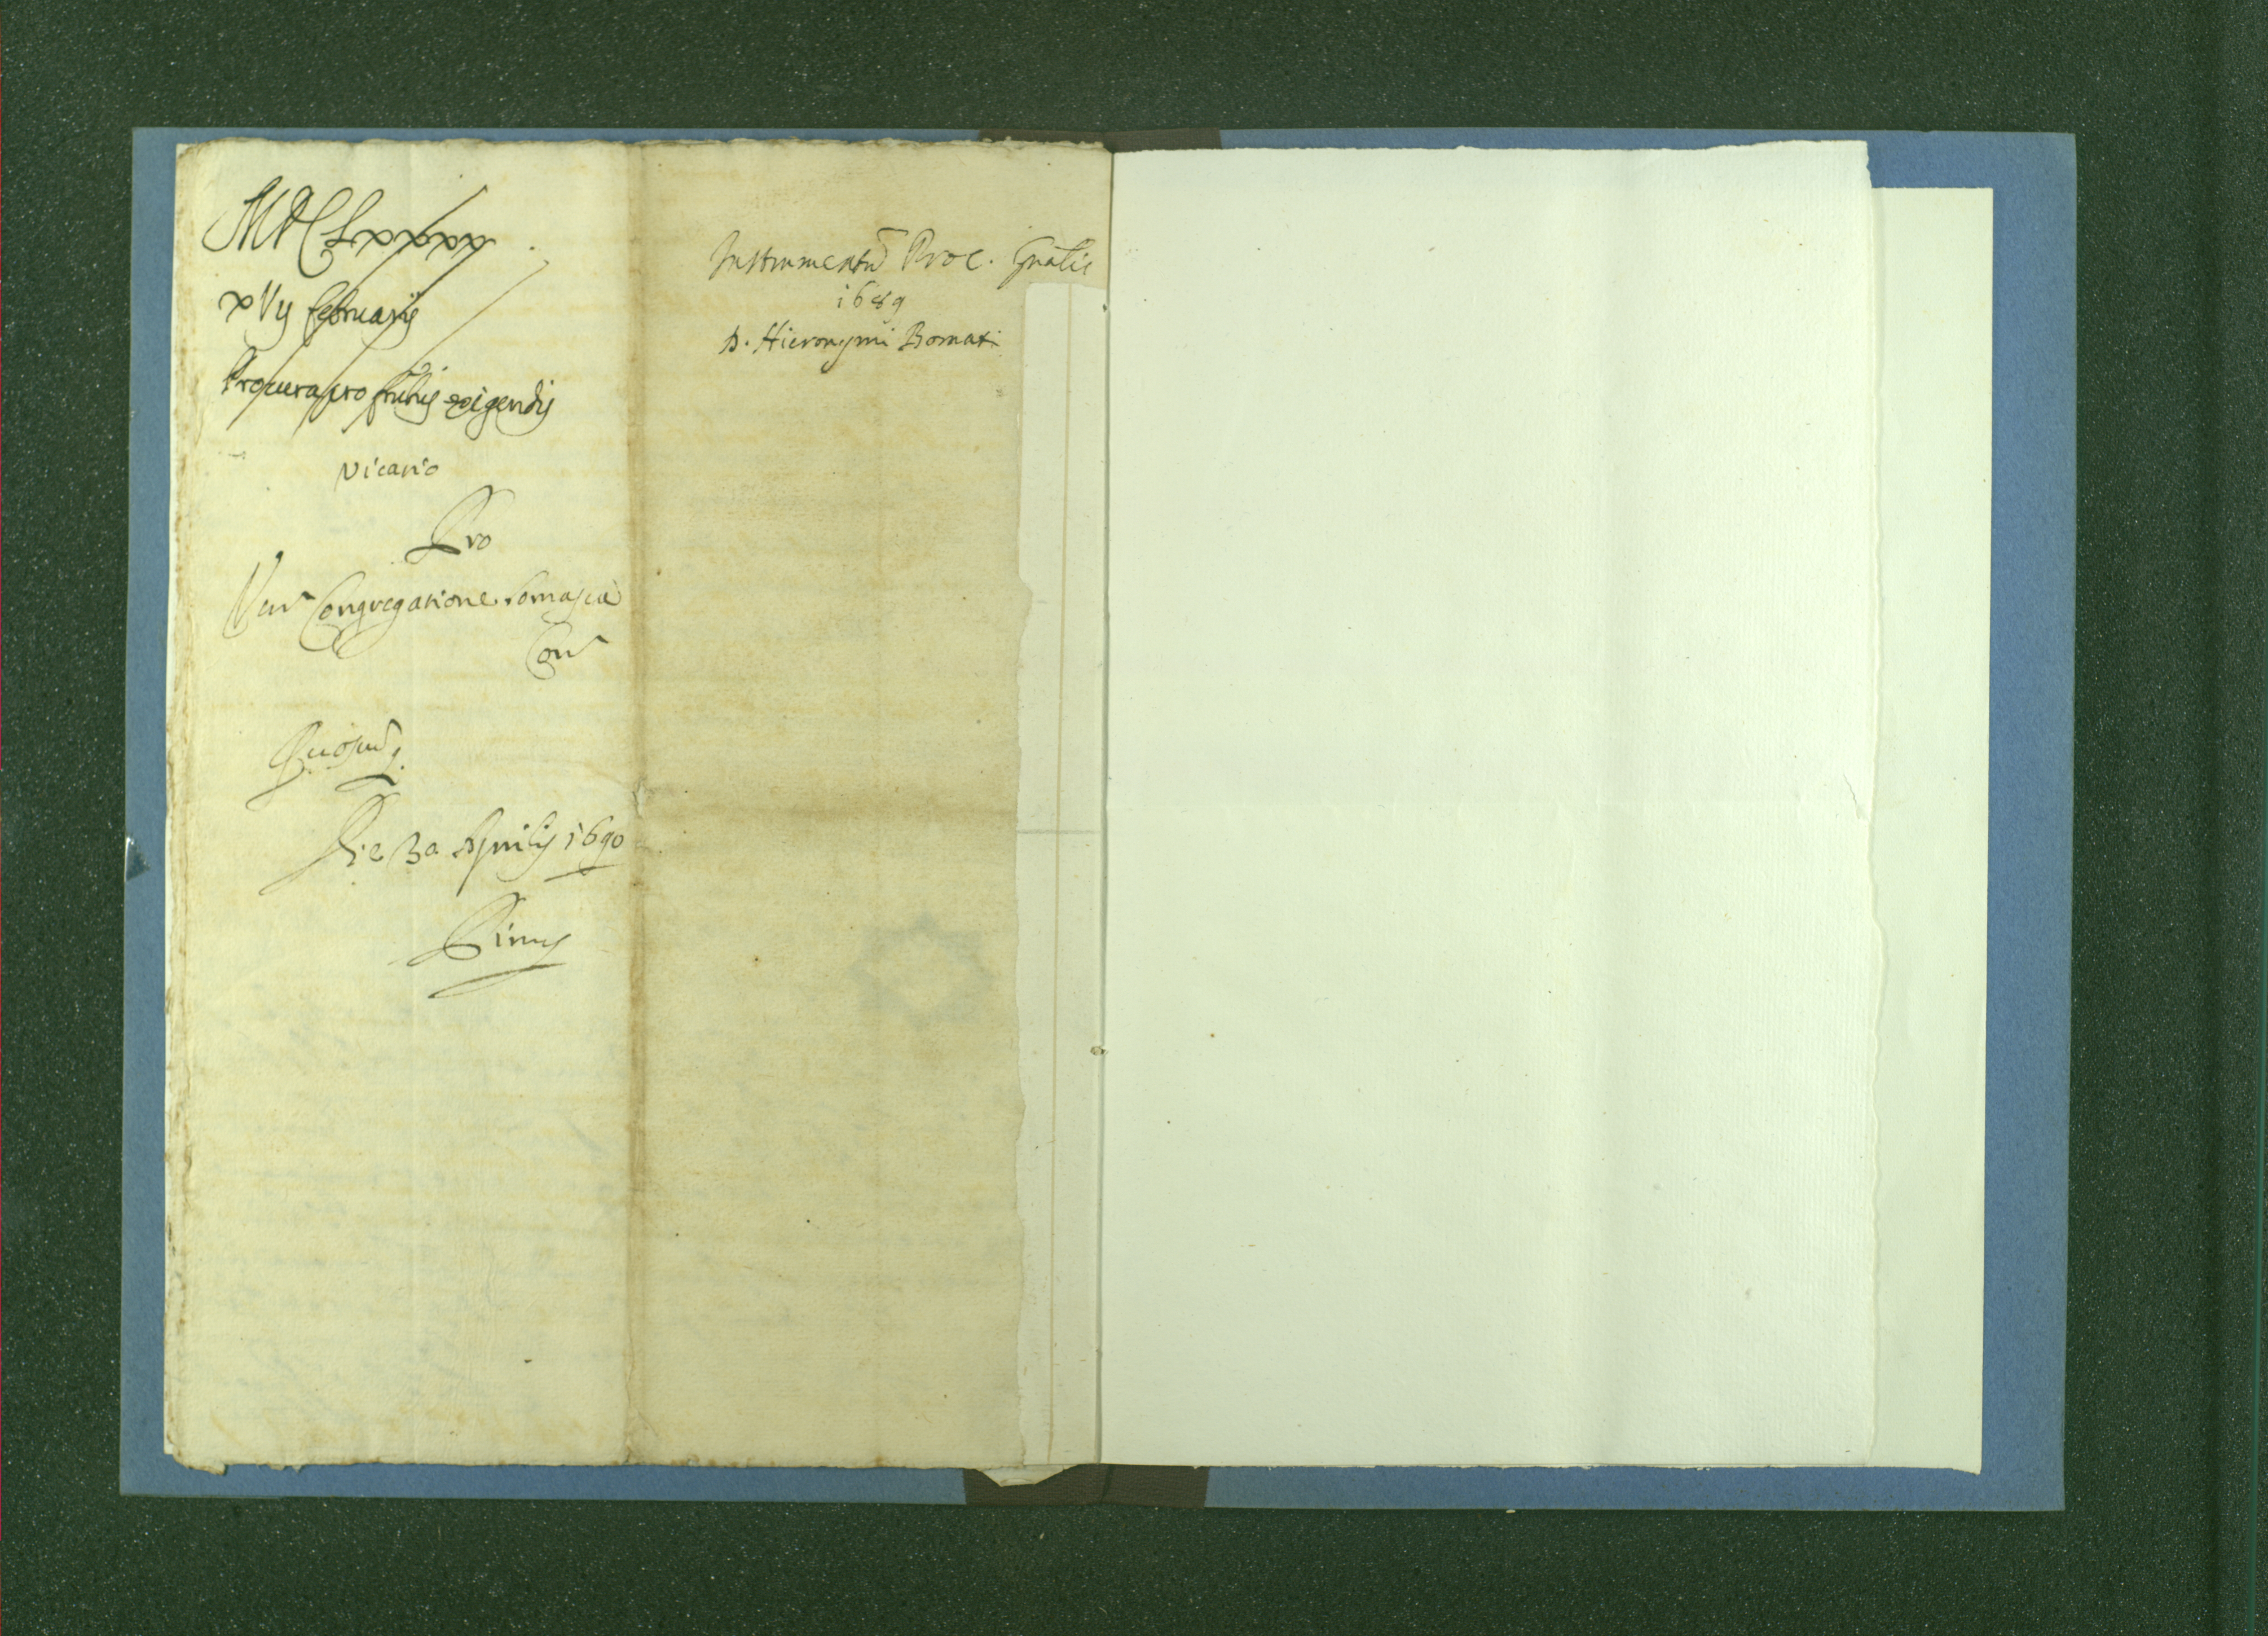 MDCLxxxx
xVij februarij
Procura pro fructis exigendis
Vicario
Pro
Ven Congregatione Somasca
Con
Die 3a Aprilis 1690
Instrumentu Proc. Gnalis
1689
D. Hieronymi Bomati